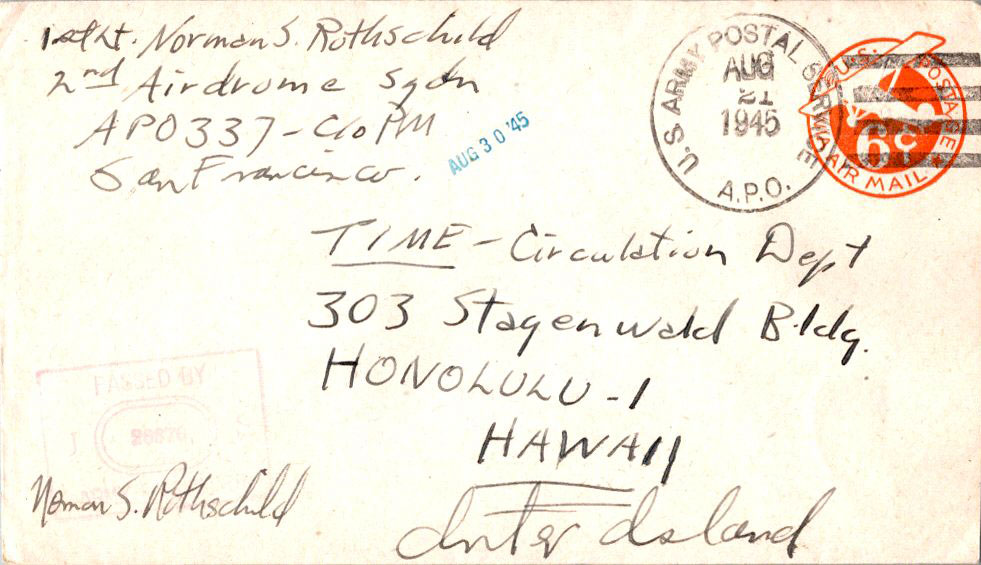 1st Lt. Norman S. Rothschild
2nd Airdrome Sqdn
APO 337 - C/o PM
San Francisco.
AUG 30 '45
U.S. ARMY POSTAL SERVICE
AUG
21
1945
A.P.O.
U.S. POSTAGE
6¢
VIA AIR MAIL
TIME - Circulation Dept
303 Stagenwald Bldg.
HONOLULU - 1
HAWAII
Inter Island
PASSED BY
Norman S. Rothschild